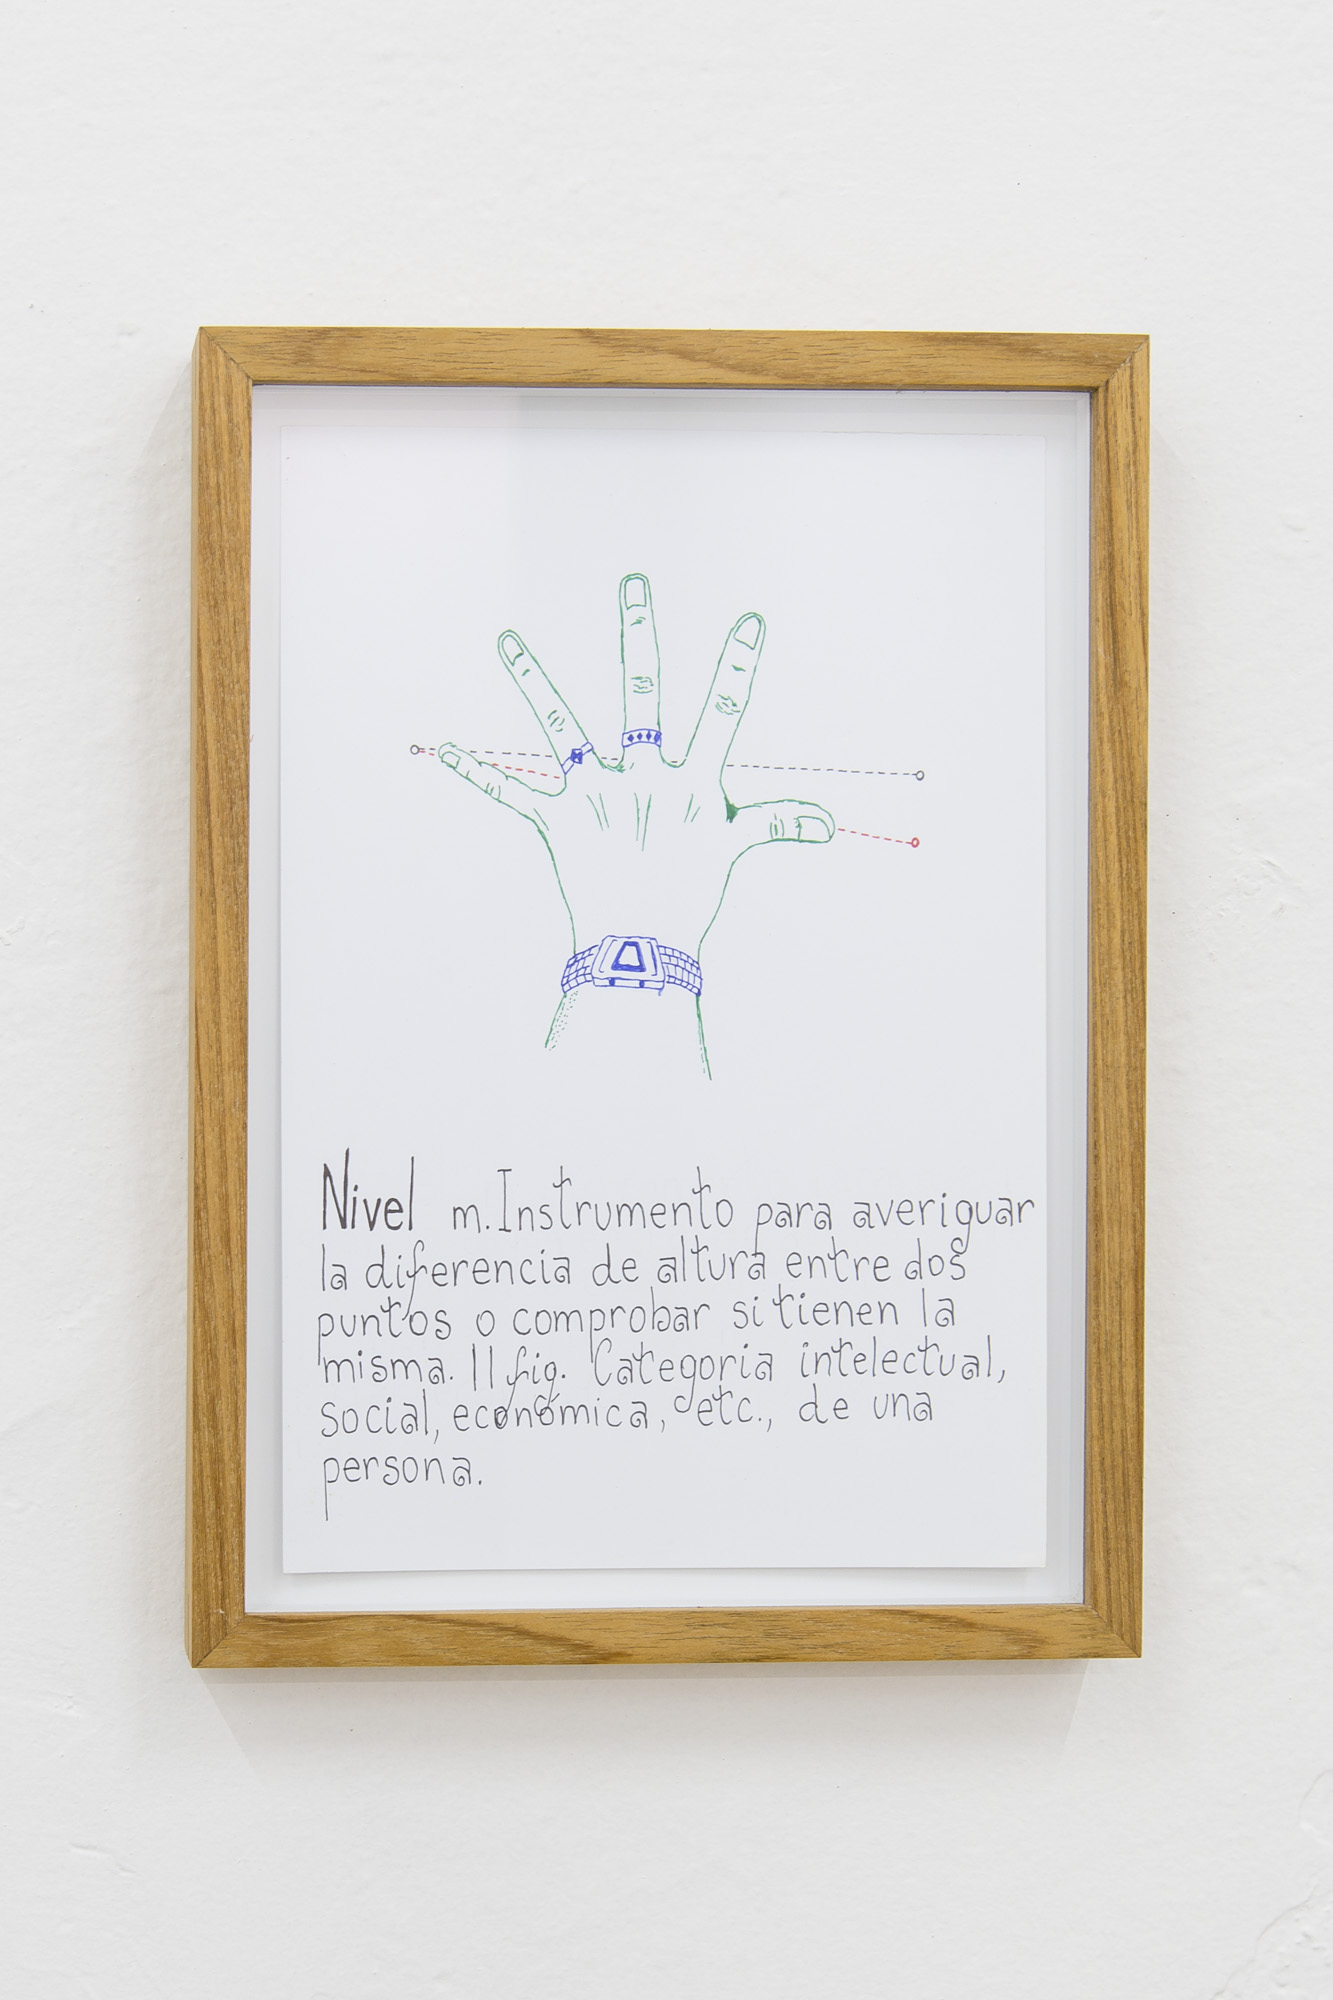 Nivel m. Instrumento para averiguar
la diferencia de altura entre dos
puntos o comprobar si tienen la
misma. || fig. Categoria intelectual,
social, económica, etc., de una
persona.